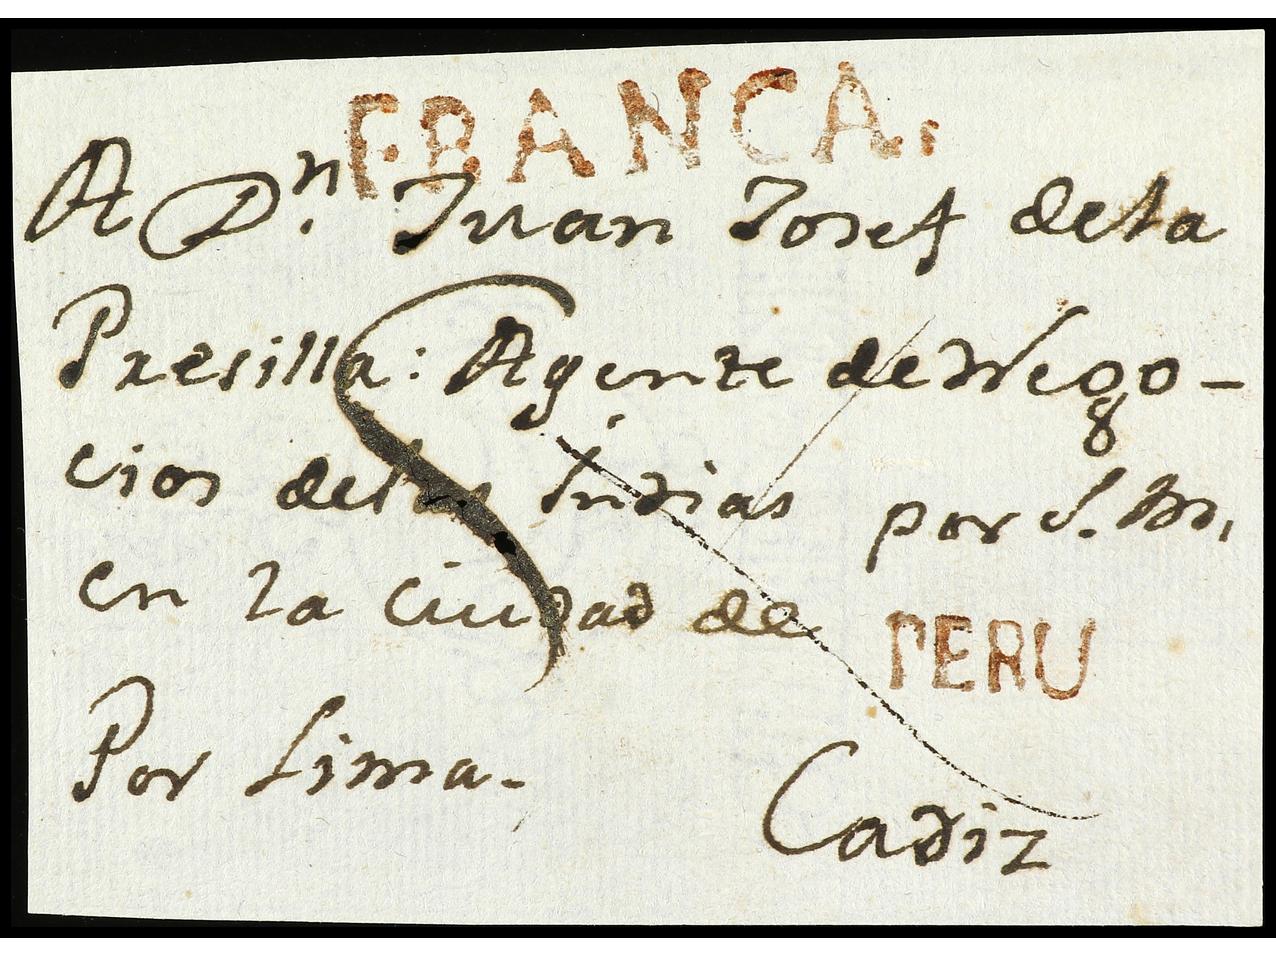 FRANCA.
A Dn. Juan Josef dela
Presilla: Agente de Nego-
cios delas Indias por S. M,
en la ciudad de
PERU
Por Lima.
Cadiz